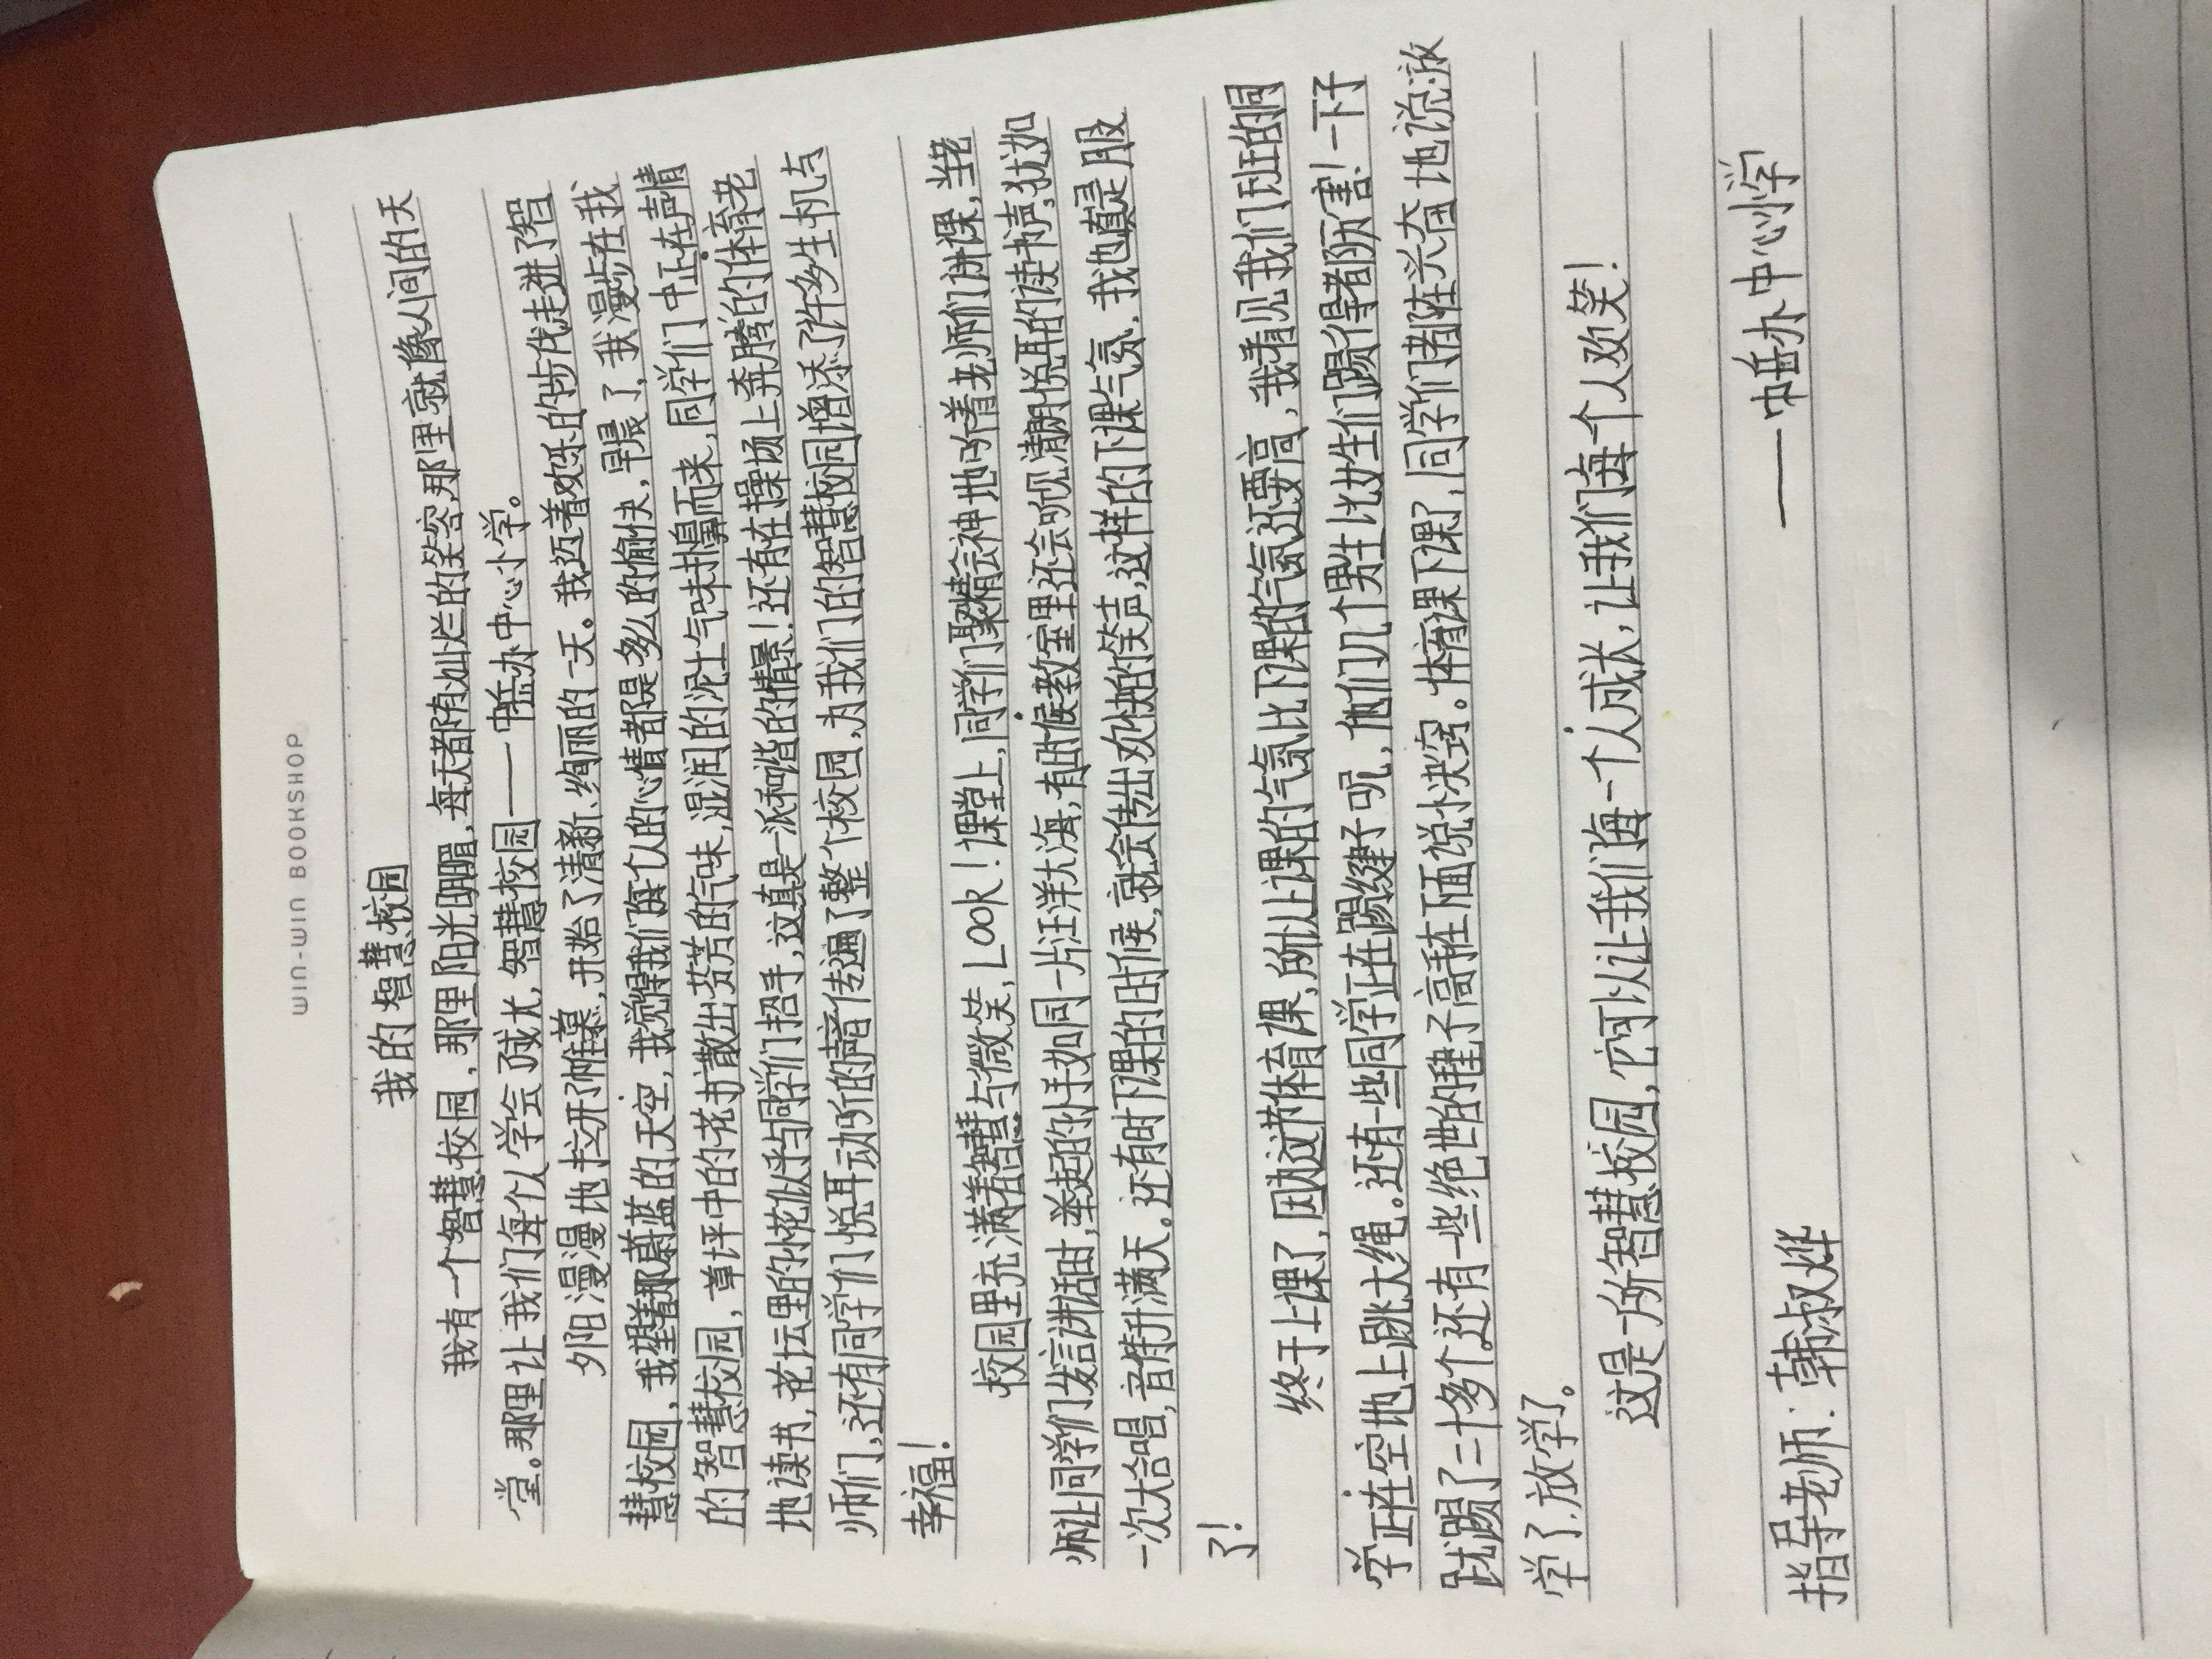 WIN-WIN BOOKSHOP
我的智慧校园
我有一个智慧校园，那里阳光明媚，每天都有灿烂的笑容，那里就像人间的天
堂。那里让我们每个人学会了成长，智慧校园——中岳办中心小学。
外阳漫漫地拉开了帷幕，开始了清新、绚丽的一天。我迈着欢乐的步伐走进了智
慧校园，我望着那蔚蓝的天空，我觉得我们每个人的心情都是多么的愉快，早晨了，我漫步在我
的智慧校园，草坪中的花朵散出芬芳的气味，湿润的泥土气味扑鼻而来，同学们中正在声情
地读书，花坛里的小花似乎与同学们招手，这真是一派和谐的情景！还有在操场上奔腾的体育老
师们，还有同学们悦耳动听的声音传遍了整个校园，为我们的智慧校园增添了许多生机与
幸福！
校园里充满着智慧与微笑，LOOK！课堂上，同学们聚精会神地听着老师们讲课，当老
师让同学们发言讲话时，举起的小手如同一片汪洋大海，有时候教室里还会听见清朗悦耳的读书声，犹如
一次大合唱，音符升满天。还有时下课的时候，就会传出欢快的笑声，这样的下课气氛，我也真是服
了！
终于上课了，因为这节体育课，所以上课的气氛比下课的气氛还要高，我看见我们班的同
学正在空地上跳大绳。还有一些同学正在踢毽子呢，他们几个男生比女生们踢得都厉害！一下子
就踢了三十多个还有一些绝世的毽子高手在下面说小诀窍。体育课下课了，同学们都在兴奋地说：放
学了，放学了。
这是一所智慧校园，它可以让我们每一个人成长，让我们每一个人欢笑！
——中岳办中心小学
指导老师：韩淑烨